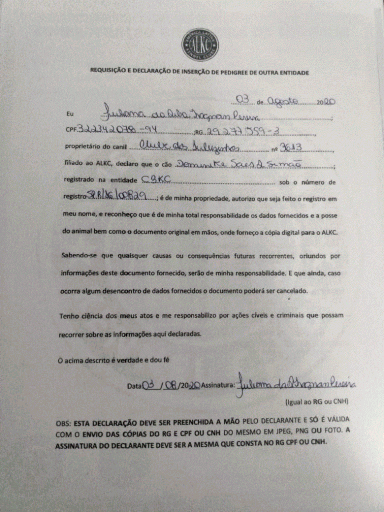 ALKC
REQUISIÇÃO E DECLARAÇÃO DE INSERÇÃO DE PEDIGREE DE OUTRA ENTIDADE
03 de Agosto 2020
Eu Juliana da
CPF 322142038-94 RG 29.277.959-2
proprietário do canil dos nº 3613
filiado ao ALKC, declaro que o cão
registrado na entidade CBKC sob o número de
registro ; é de minha propriedade, autorizo que seja feito o registro em
meu nome, e reconheço que é de minha total responsabilidade os dados fornecidos e a posse
do animal bem como o documento original em mãos, onde forneço a cópia digital para o ALKC.
Sabendo-se que quaisquer causas ou consequências futuras recorrentes, oriundos por
informações deste documento fornecido, serão de minha responsabilidade. E que ainda, caso
ocorre algum desencontro de dados fornecidos o documento poderá ser cancelado.
Tenho ciência dos meus atos e me responsabilizo por ações cíveis e criminais que possam
recorrer sobre as informações aqui declaradas.
O acima descrito é verdade e dou fé
Data 03 / 08 /2020 Assinatura: Juliana da Pereira
(Igual ao RG ou CNH)
OBS: ESTA DECLARAÇÃO DEVE SER PREENCHIDA A MÃO PELO DECLARANTE E SÓ É VÁLIDA
COM O ENVIO DAS CÓPIAS DO RG E CPF OU CNH DO MESMO EM JPEG, PNG OU FOTO. A
ASSINATURA DO DECLARANTE DEVE SER A MESMA QUE CONSTA NO RG CPF OU CNH.